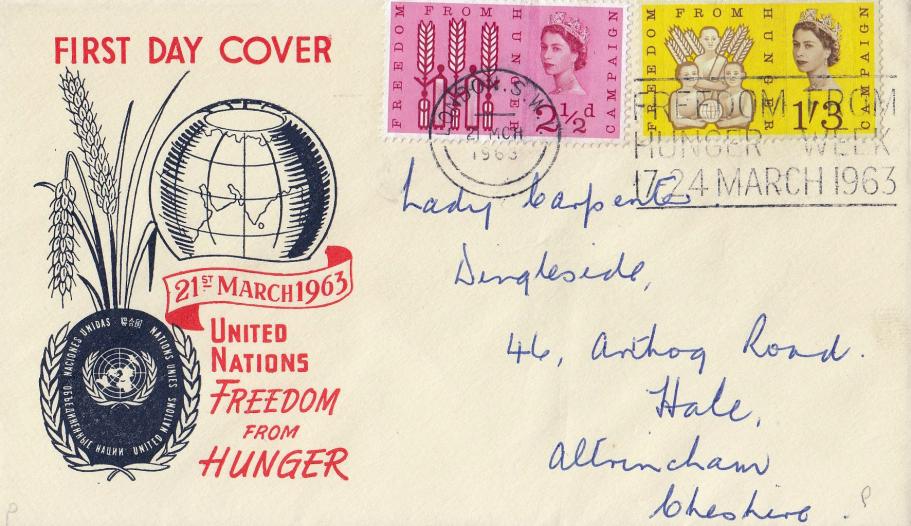 FIRST DAY COVER
21ST MARCH 1963
UNITED
NATIONS
FREEDOM
FROM
HUNGER
NACIONES UNIDAS
NATIONS UNIES
UNITED NATIONS
ОБЪЕДИНЕННЫЕ НАЦИИ
FREEDOM FROM HUNGER CAMPAIGN
2½d
FREEDOM FROM HUNGER CAMPAIGN
1'3
LONDON. S.W.
21 MCH
1963
FREEDOM FROM
HUNGER WEEK
17-24 MARCH 1963
Lady Carpenter
Dingleside,
46, Arthog Road.
Hale,
Altrincham
Cheshire.
P
P